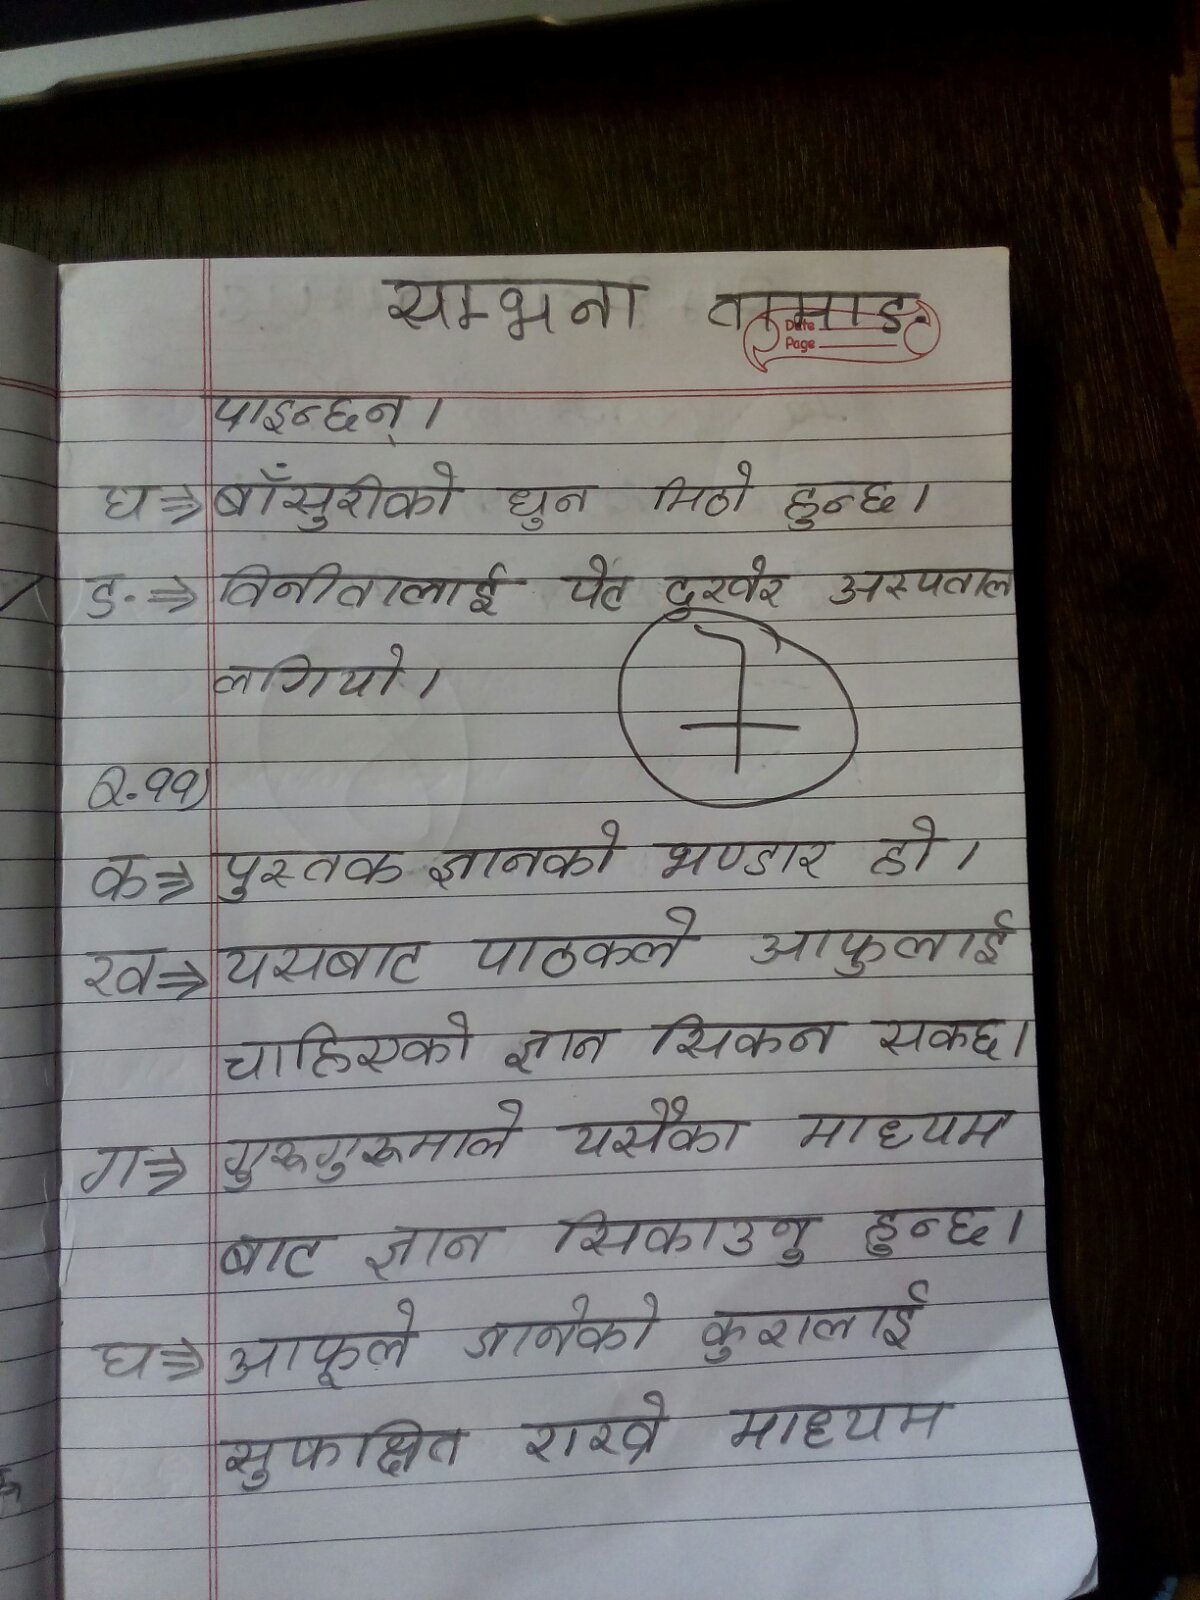 सम्भना तामाङ
Date
Page
पाइन्छन्।
घ⇒ बाँसुरीको धुन मिठो हुन्छ।
ङ⇒ विनीतालाई पेट दुखेर अस्पताल
लगियो।
Q.११)
क⇒ पुस्तक ज्ञानको भण्डार हो।
ख⇒ यसबाट पाठकले आफुलाई
चाहिएको ज्ञान सिकन सकछ।
ग⇒ गुरुगुरुमाले यसैका माध्यम
बाट ज्ञान सिकाउनु हुन्छ।
घ⇒ आफूले जानेको कुरालाई
राख्ने माध्यम